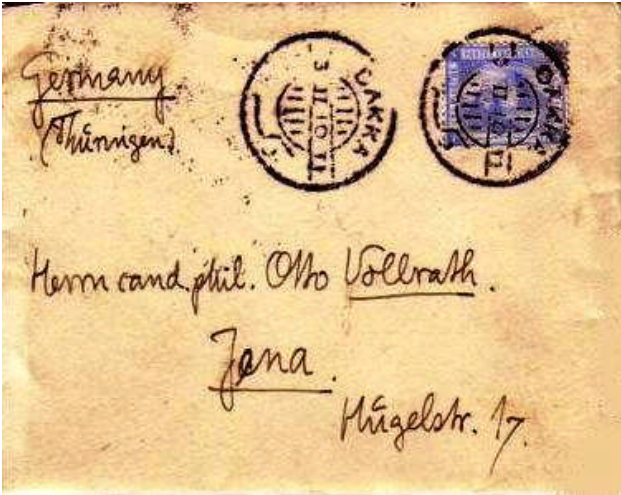 Germany
(Thüringen).
Herrn cand. phil. Otto Vollrath.
Jena.
Hügelstr. 17.